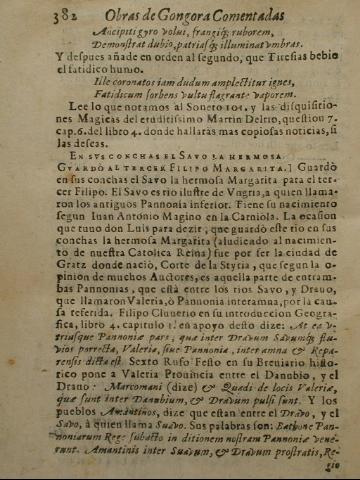 382 Obras de Gongora Comentadas
Ancipiti gyro volui, frangiq; ruborem,
Demonstrat dubio, patriasq; illuminat vmbras.
Y despues añade en orden al segundo, que Tiresias bebio
el fatidico humo.
Ille coronatos iam dudum amplectitur ignes,
Fatidicum sorbens vultu flagrante vaporem.
Lee lo que notamos al Soneto 101. y las disquisitio-
nes Magicas del eruditissimo Martin Delrio, question 7.
cap. 6. del libro 4. donde hallaràs mas copiosas noticias, si
las deseas.
EN SVS CONCHAS EL SAVO LA HERMOSA
GVARDÒ AL TERCER FILIPO MARGARITA. ] Guardò
en sus conchas el Savo la hermosa Margarita para el ter-
cer Filipo. El Savo es rio ilustre de Vngria, a quien llama-
ron los antiguos Pannonia inferior. Tiene su nacimiento
segun Iuan Antonio Magino en la Carniola. La ocasion
que tuuo don Luis para dezir, que guardò este rio en sus
conchas la hermosa Margarita (aludiendo al nacimien-
to de nuestra Catolica Reina) fue por ser la ciudad de
Gratz donde naciò, Corte de la Styria, que segun la o-
pinion de muchos Autores, es aquella parte de entram-
bas Pannonias, que està entre los rios Savo, y Drauo,
que llamaron Valeria, ò Pannonia interamna, por la cau-
sa referida. Filipo Cluuerio en su introduccion Geogra-
fica, libro 4. capitulo 1. en apoyo desto dize: At ex v-
triusque Pannoniæ pars, quæ inter Dravum Savumq; flu-
vios porrecta, Valeria, siue Pannonia, interamna & Ripa-
rensis dicta est. Sexto Rufo Festo en su Breuiario histo-
rico pone a Valeria Prouincia entre el Danubio, y el
Drauo: Marcomani (dize) & Quadi de locis Valeriæ,
quæ sunt inter Danubium, & Dravum pulsi sunt. Y los
pueblos Amantinos, dize que estan entre el Dravo, y el
Savo, à quien llama Suavo. Sus palabras son: Bathone Pan-
noniarum Rege subacto in ditionem nostram Pannoniæ vene-
runt. Amantinis inter Suavum, & Dravum prostratis, Re-
gio